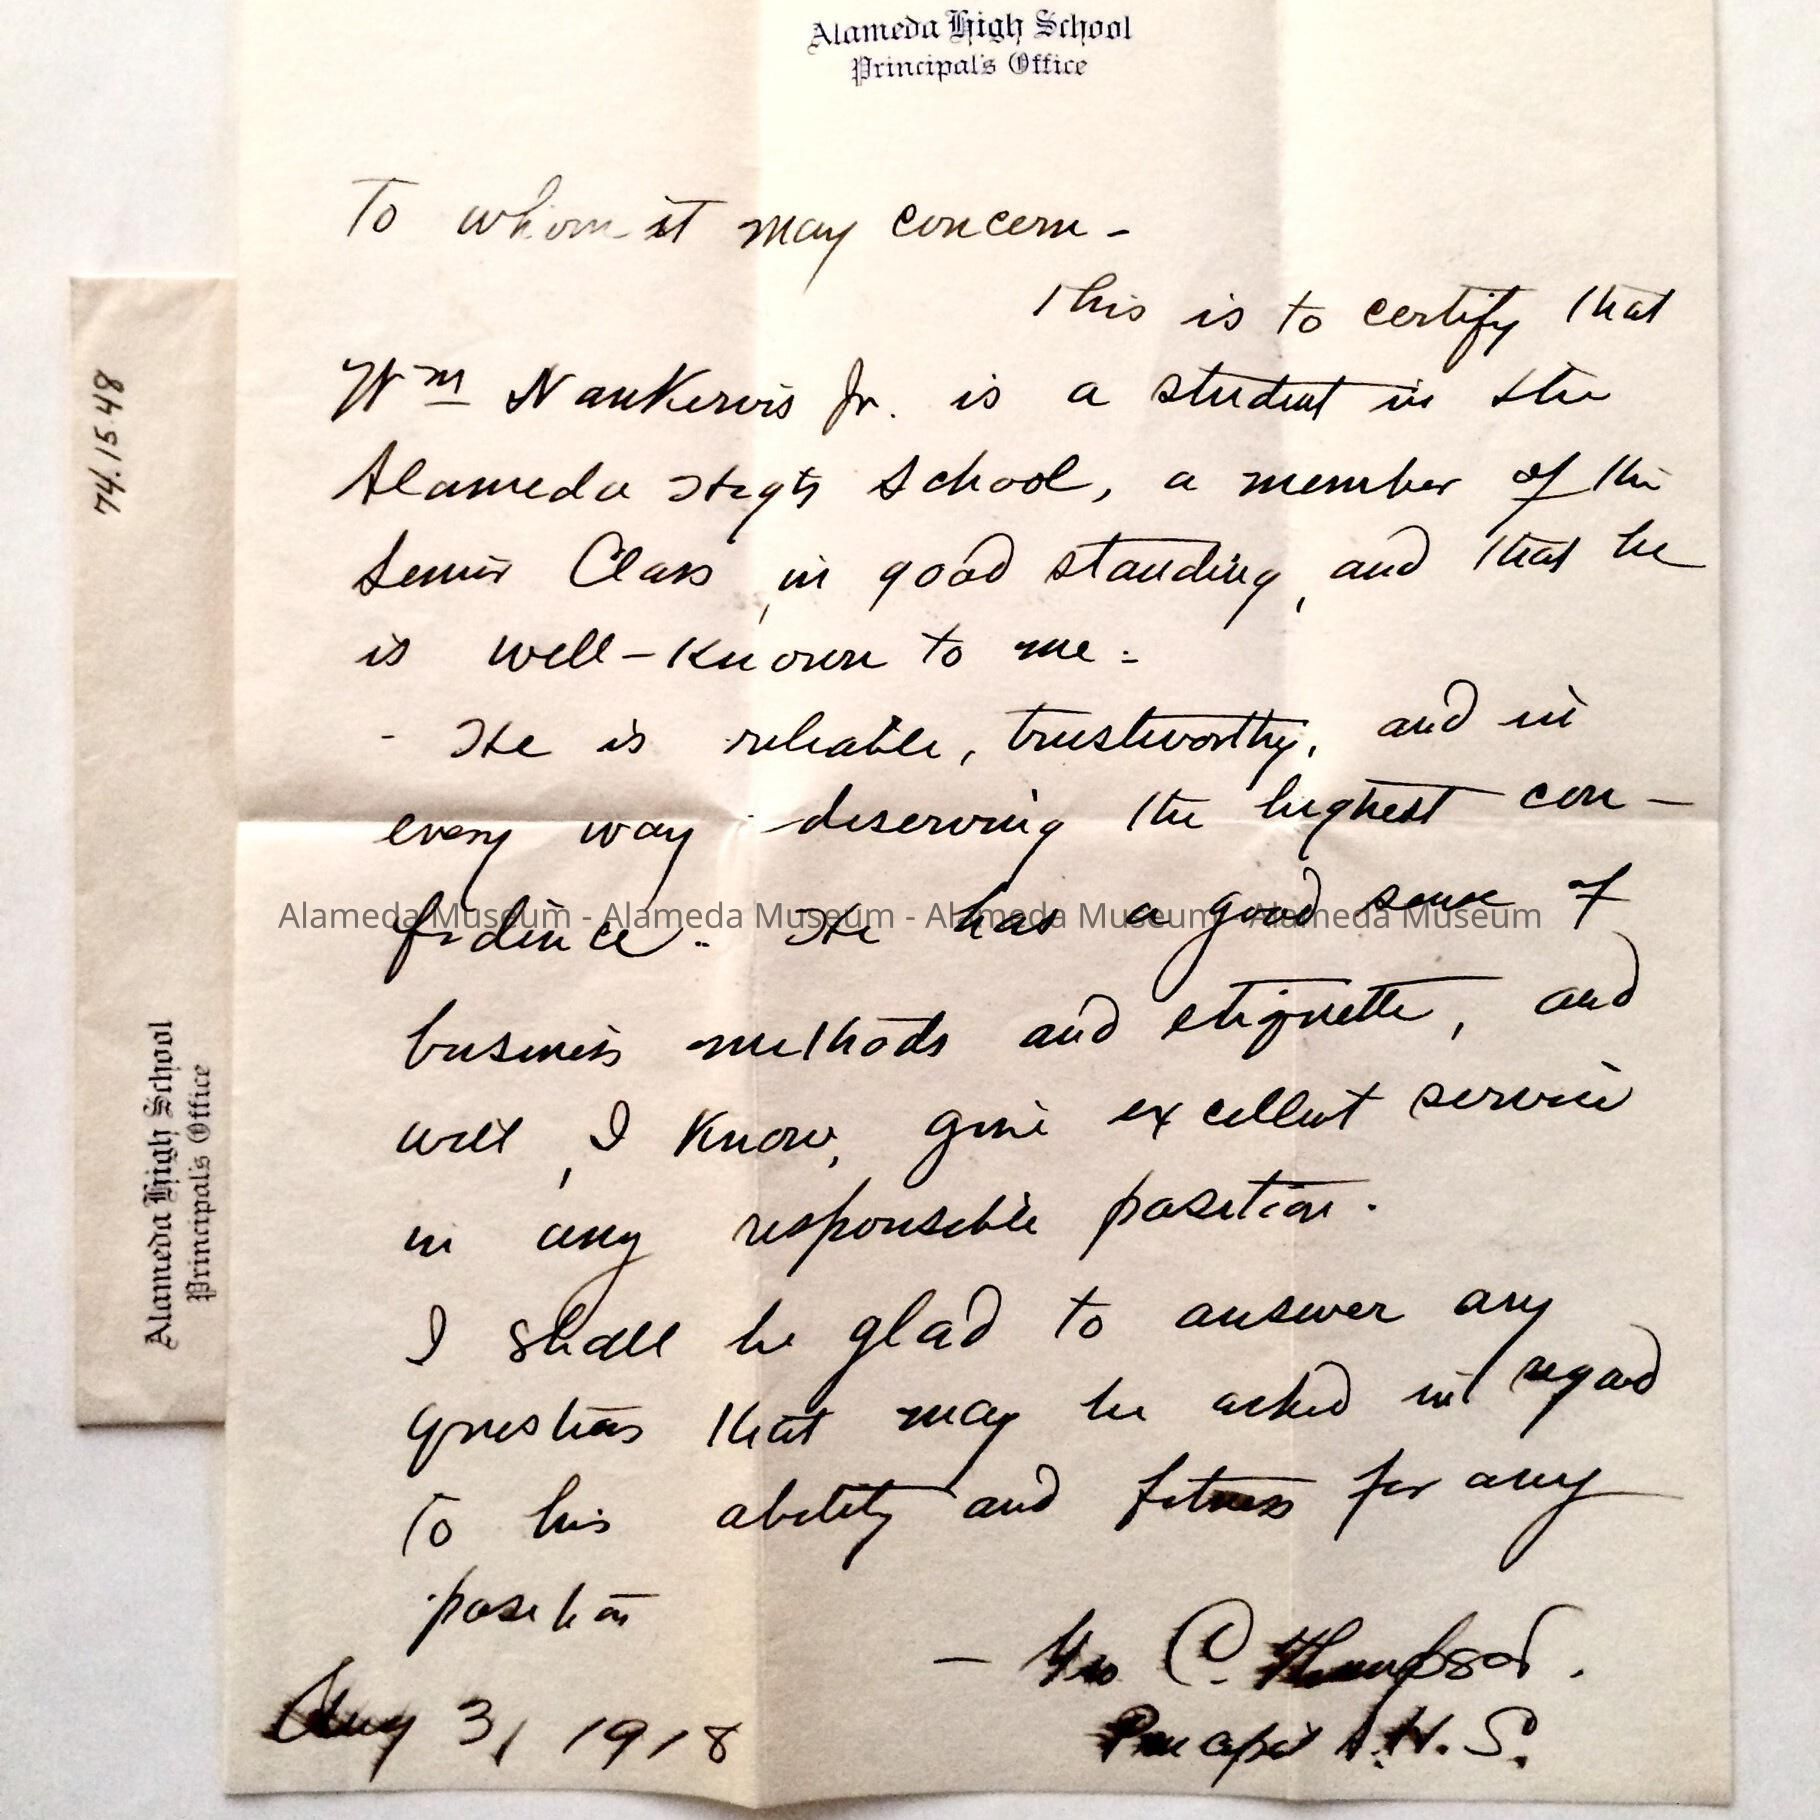 Alameda High School
Principal's Office
To whom it may concern -
This is to certify that
Wm NanKervis Jr. is a student in the
Alameda High School, a member of the
Senior Class, in good standing, and that he
is well-known to me.
- He is reliable, trustworthy, and in
every way deserving the highest con-
fidence. He has a good sense of
business methods and etiquette, and
will, I know, give excellent service
in any responsible position.
I shall be glad to answer any
questions that may be asked in regard
to his ability and fitness for any
position
- Geo C. Thompson.
Principal A.H.S.
Aug 31, 1918
74.15.48
Alameda High School
Principal's Office
Alameda Museum - Alameda Museum - Alameda Museum - Alameda Museum